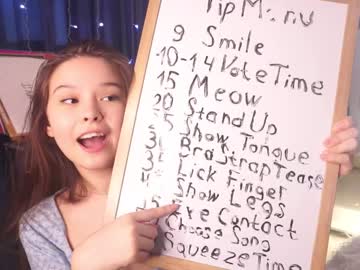 Tip Menu
9 Smile
-10-14 Vote Time
15 Meow
20 Stand Up
Show Tongue
Bra Strap Tease
Lick Finger
Show Legs
Eye Contact
Choose Song
Squeeze Time